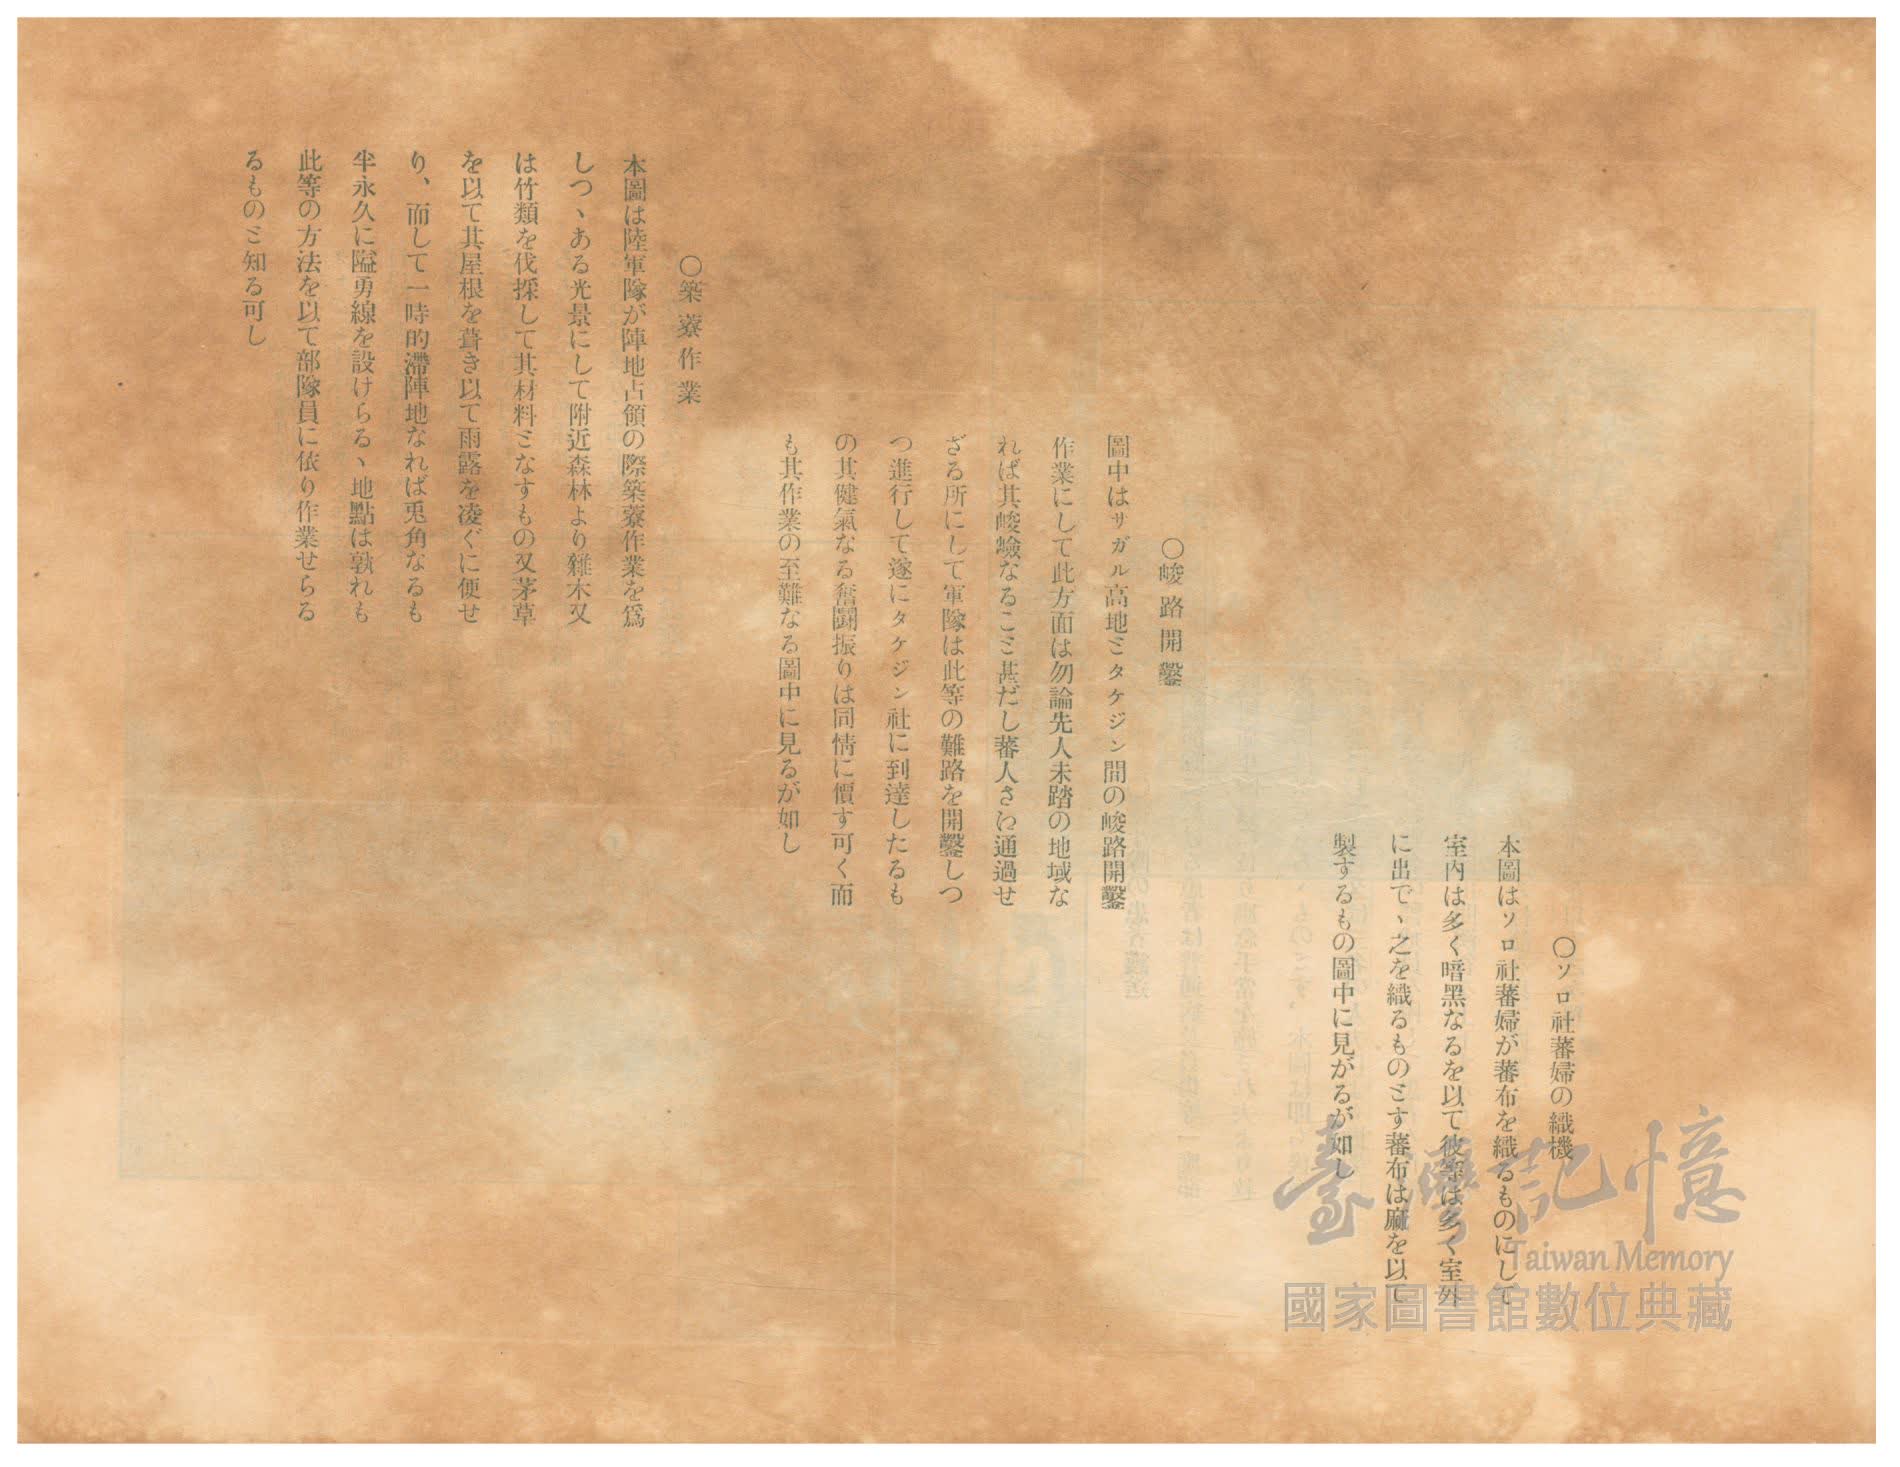 〇ソロ社蕃婦の織機
本圖はソロ社蕃婦が蕃布を織るものにして
室內は多く暗黑なるを以て彼等は多く室外
に出でゝ之を織るものミす蕃布は麻を以て
製するもの圖中に見がるが如し
〇峻路開鑿
圖中はサガル高地ミタケジン間の峻路開鑿
作業にして此方面は勿論先人未踏の地域な
れば其峻嶮なるこミ甚だし蕃人さへ通過せ
ざる所にして軍隊は此等の難路を開鑿しつ
つ進行して遂にタケジン社に到達したるも
の其健氣なる奮鬪振りは同情に價す可く而
も其作業の至難なる圖中に見るが如し
〇築藔作業
本圖は陸軍隊が陣地占領の際築藔作業を爲
しつゝある光景にして附近森林より雜木又
は竹類を伐採して其材料ミなすもの又茅草
を以て其屋根を葺き以て雨露を凌ぐに便せ
り、而して一時的滯陣地なれば兎角なるも
半永久に隘勇線を設けらるゝ地點は孰れも
此等の方法を以て部隊員に依り作業せらる
るものミ知る可し
臺灣記憶
Taiwan Memory
國家圖書館數位典藏